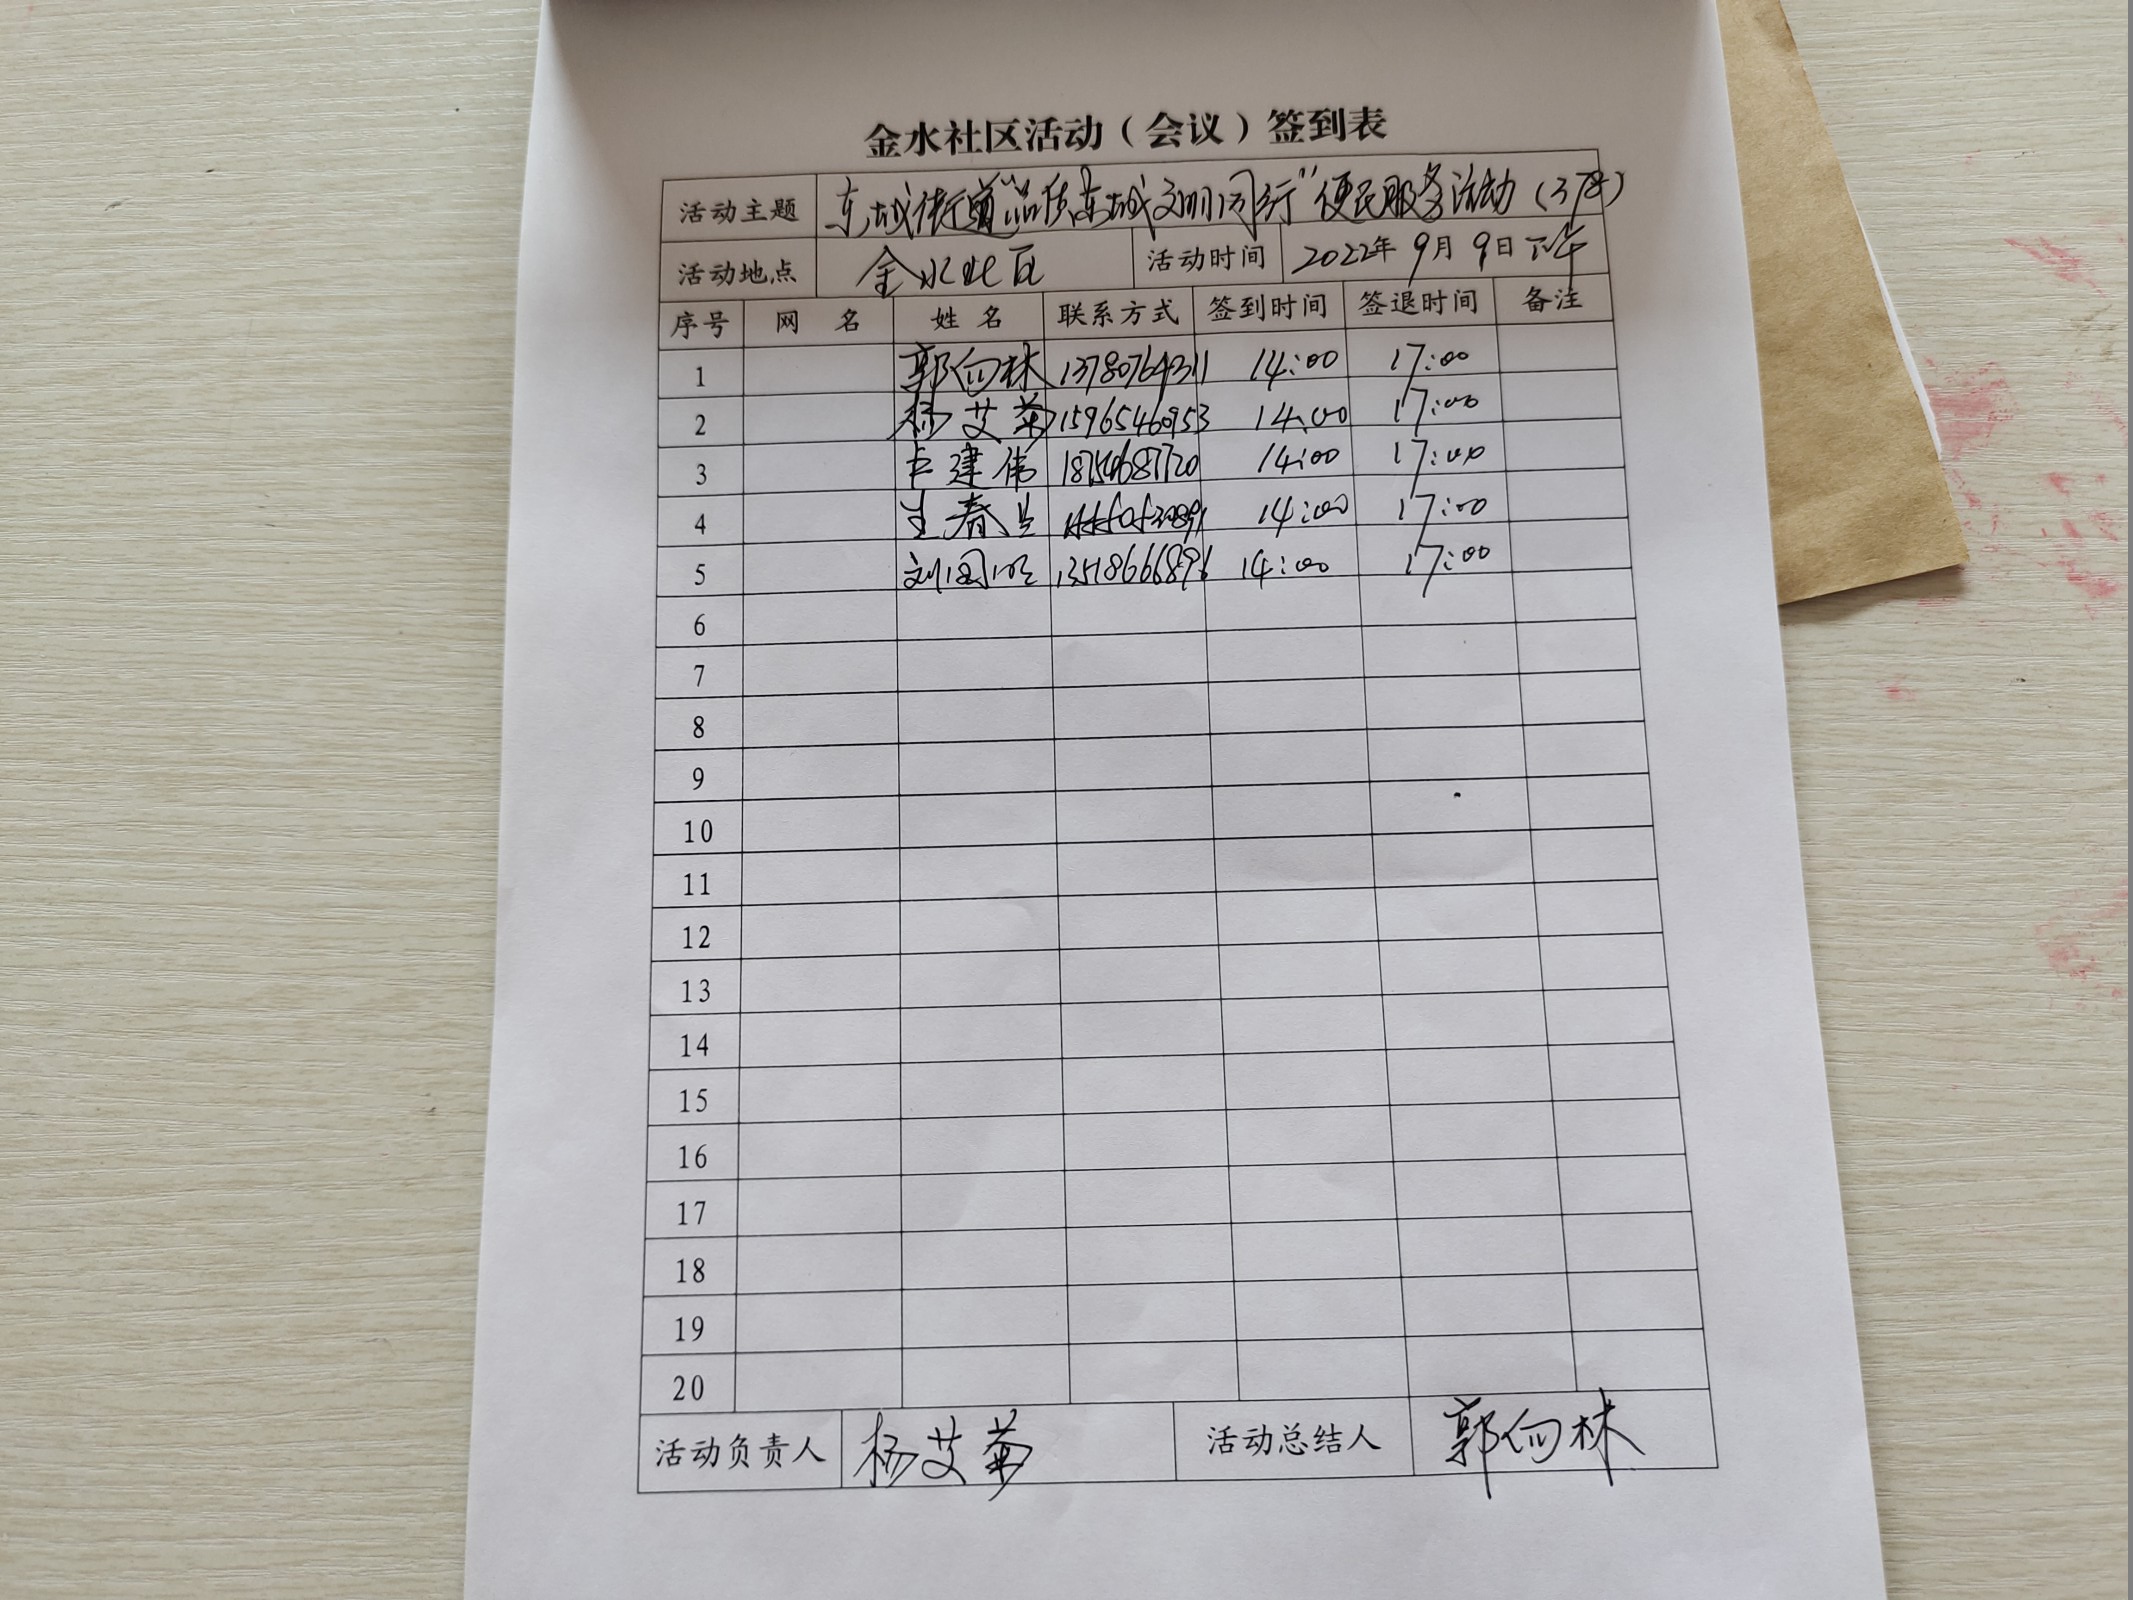 金水社区活动（会议）签到表
活动主题 东城街道"品质东城文明同行"便民服务活动
活动地点 金水社区 活动时间 2022年9月9日下午
序号 网名 姓名 联系方式 签到时间 签退时间 备注
1 郭向林 13780764311 14:00 17:00
2 杨艾菊 15965460953 14:00 17:00
3 建伟 14:00 17:00
4 王春兰 14:00 17:00
5 刘国 13518666896 14:00 17:00
6
7
8
9
10
11
12
13
14
15
16
17
18
19
20
活动负责人 杨艾菊 活动总结人 郭向林